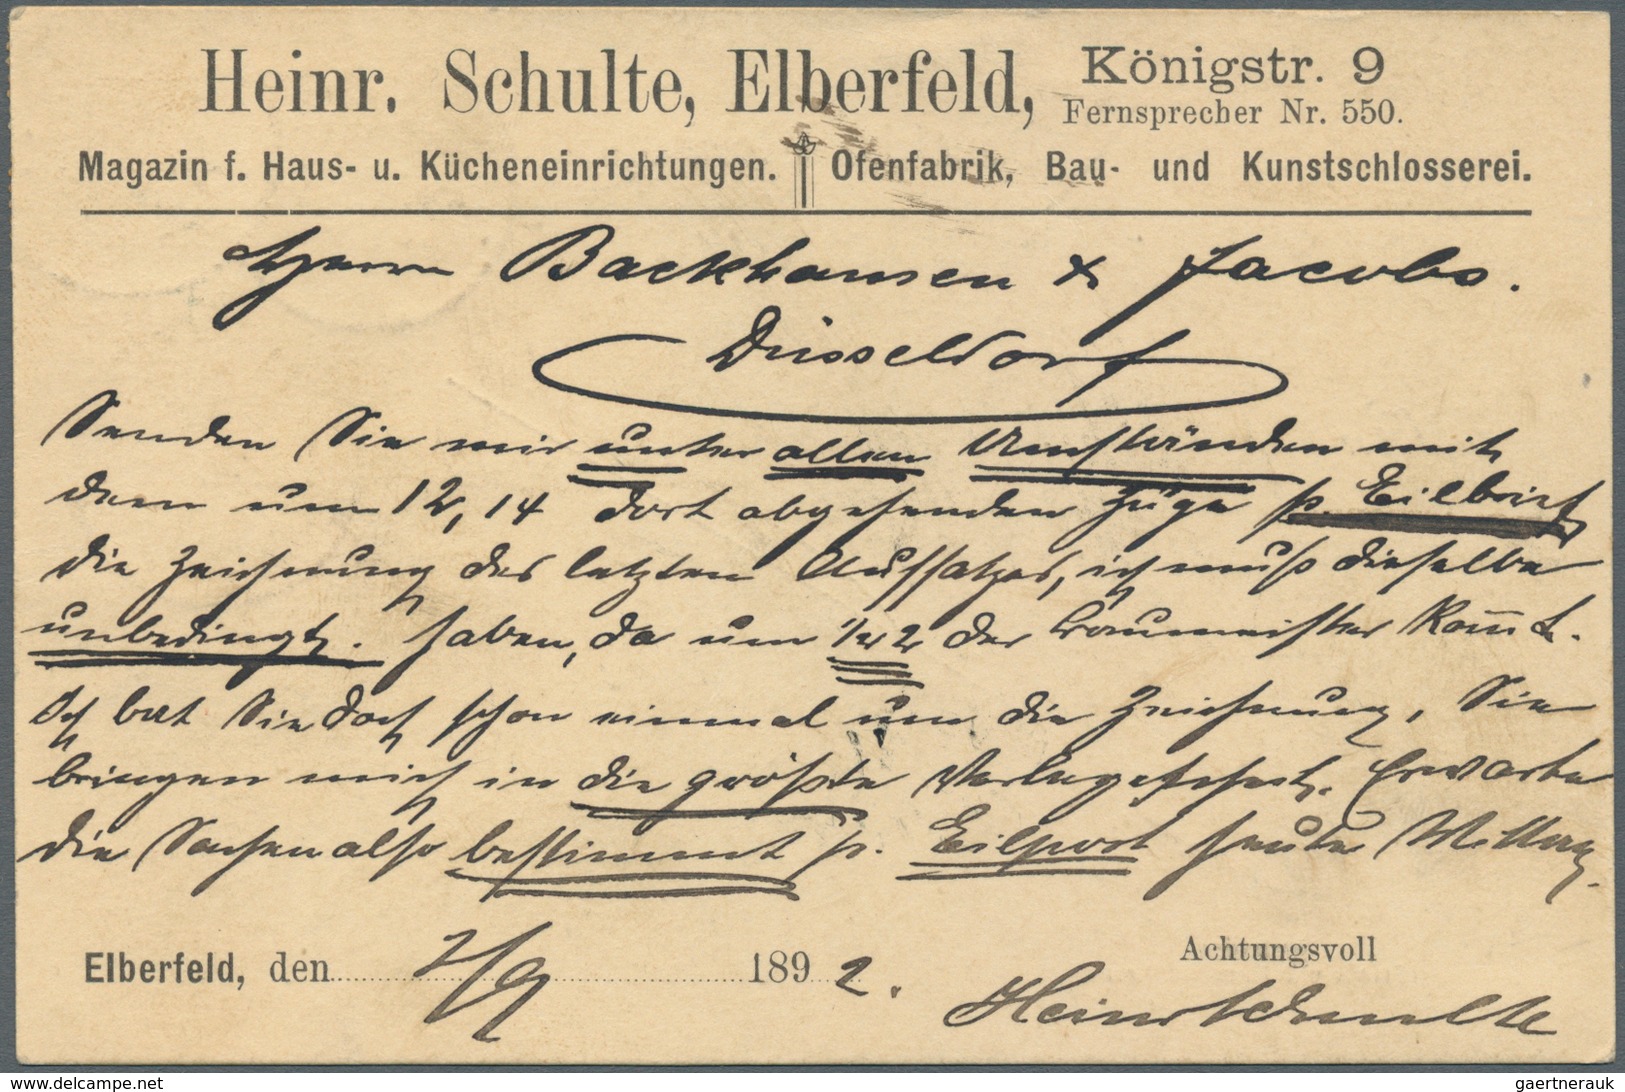 Heinr. Schulte, Elberfeld, Königstr. 9
Fernsprecher Nr. 550.
Magazin f. Haus- u. Kücheneinrichtungen. Ofenfabrik, Bau- und Kunstschlosserei.
Herrn Backhausen & Jacobs.
Düsseldorf
Senden Sie mir unter allen Umständen mit
dem um 12,14 dort abgehenden Zuge p. Eilbrief
die Zeichnung des letzten Aufsatzes, ich muß dieselbe
unbedingt. haben, da um 1/2 2 der Baumeister kom̅t.
Ich bat Sie doch schon einmal um die Zeichnung, Sie
bringen mich in die größte Verlegenheit. Erwarte
die Sachen also bestimmt p. Eilpost heute Mittag.
Elberfeld, den 2/9 1892.
Achtungsvoll
Heinr Schulte
gaertnerauk
www.delcampe.net